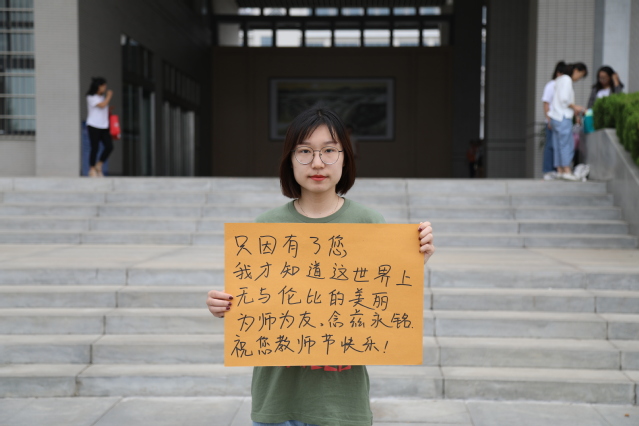 只因有了您
我才知道这世界上
无与伦比的美丽
为师为友。念兹永铭.
祝您教师节快乐!